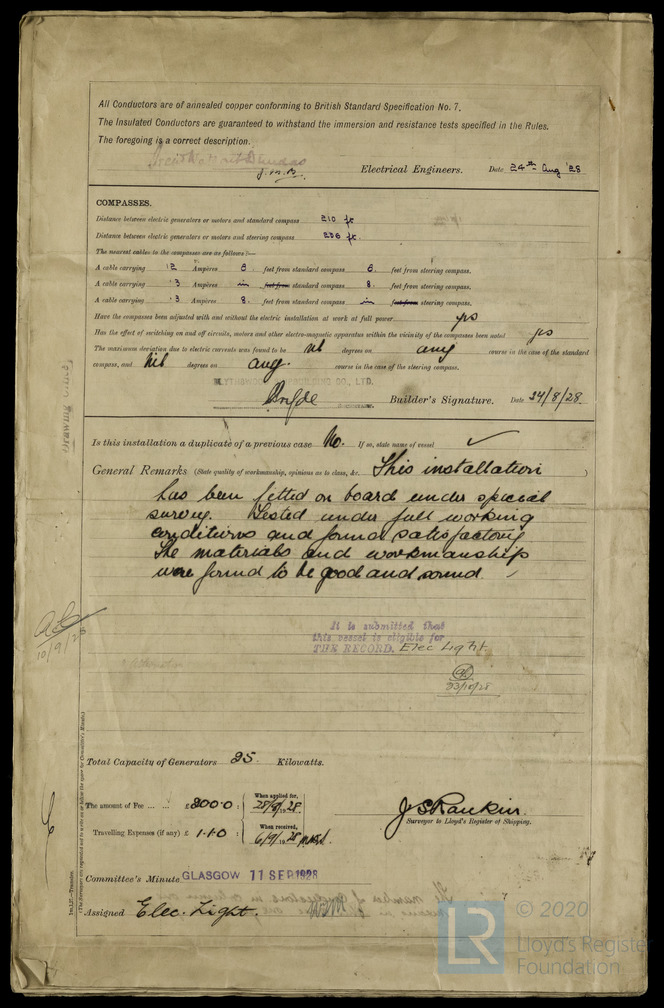 All Conductors are of annealed copper conforming to British Standard Specification No. 7.
The Insulated Conductors are guaranteed to withstand the immersion and resistance tests specified in the Rules.
The foregoing is a correct description.
Electrical Engineers. Date 24th Aug '28
COMPASSES.
Distance between electric generators or motors and standard compass 210 ft
Distance between electric generators or motors and steering compass 236 ft.
The nearest cables to the compasses are as follows:—
A cable carrying 12 Ampères 6. feet from standard compass 6. feet from steering compass.
A cable carrying ·3 Ampères in feet from standard compass 8. feet from steering compass.
A cable carrying ·3 Ampères 8. feet from standard compass in feet from steering compass.
Have the compasses been adjusted with and without the electric installation at work at full power yes
Has the effect of switching on and off circuits, motors and other electro-magnetic apparatus within the vicinity of the compasses been noted yes
The maximum deviation due to electric currents was found to be Nil degrees on any course in the case of the standard
compass, and Nil degrees on any. course in the case of the steering compass.
BLYTHSWOOD SHIPBUILDING CO., LTD.
Builder's Signature. Date 24/8/28
Is this installation a duplicate of a previous case No. If so, state name of vessel
General Remarks (State quality of workmanship, opinions as to class, &c. This installation
has been fitted on board under special
survey. Tested under full working
conditions and found satisfactory
The materials and workmanship
were found to be good and sound.
It is submitted that
this vessel is eligible for
THE RECORD. Elec Light.
10/9/28
Total Capacity of Generators 25 Kilowatts.
The amount of Fee ... ... £ 20:0:0 : When applied for, 28/8/1928.
Travelling Expenses (if any) £ 1.1.0 : When received, 6/9/1928
J S Rankin.
Surveyor to Lloyd's Register of Shipping.
Committee's Minute GLASGOW 11 SEP 1928
Assigned Elec. Light.
Im.1,27.—Transfer.
© 2020
LR
Lloyd's Register
Foundation